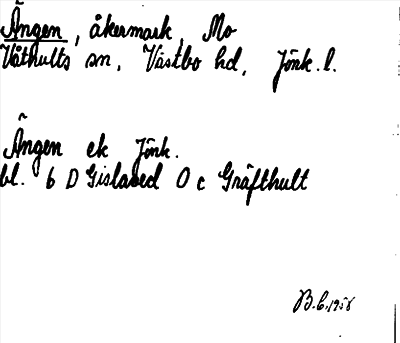 Ängen, åkermark, Mo
Våthults sn, Västbo hd, Jönk. l.
Ängen ek Jönk.
bl. 6 D Gislaved 0 c Gräfthult
B.E. 1958